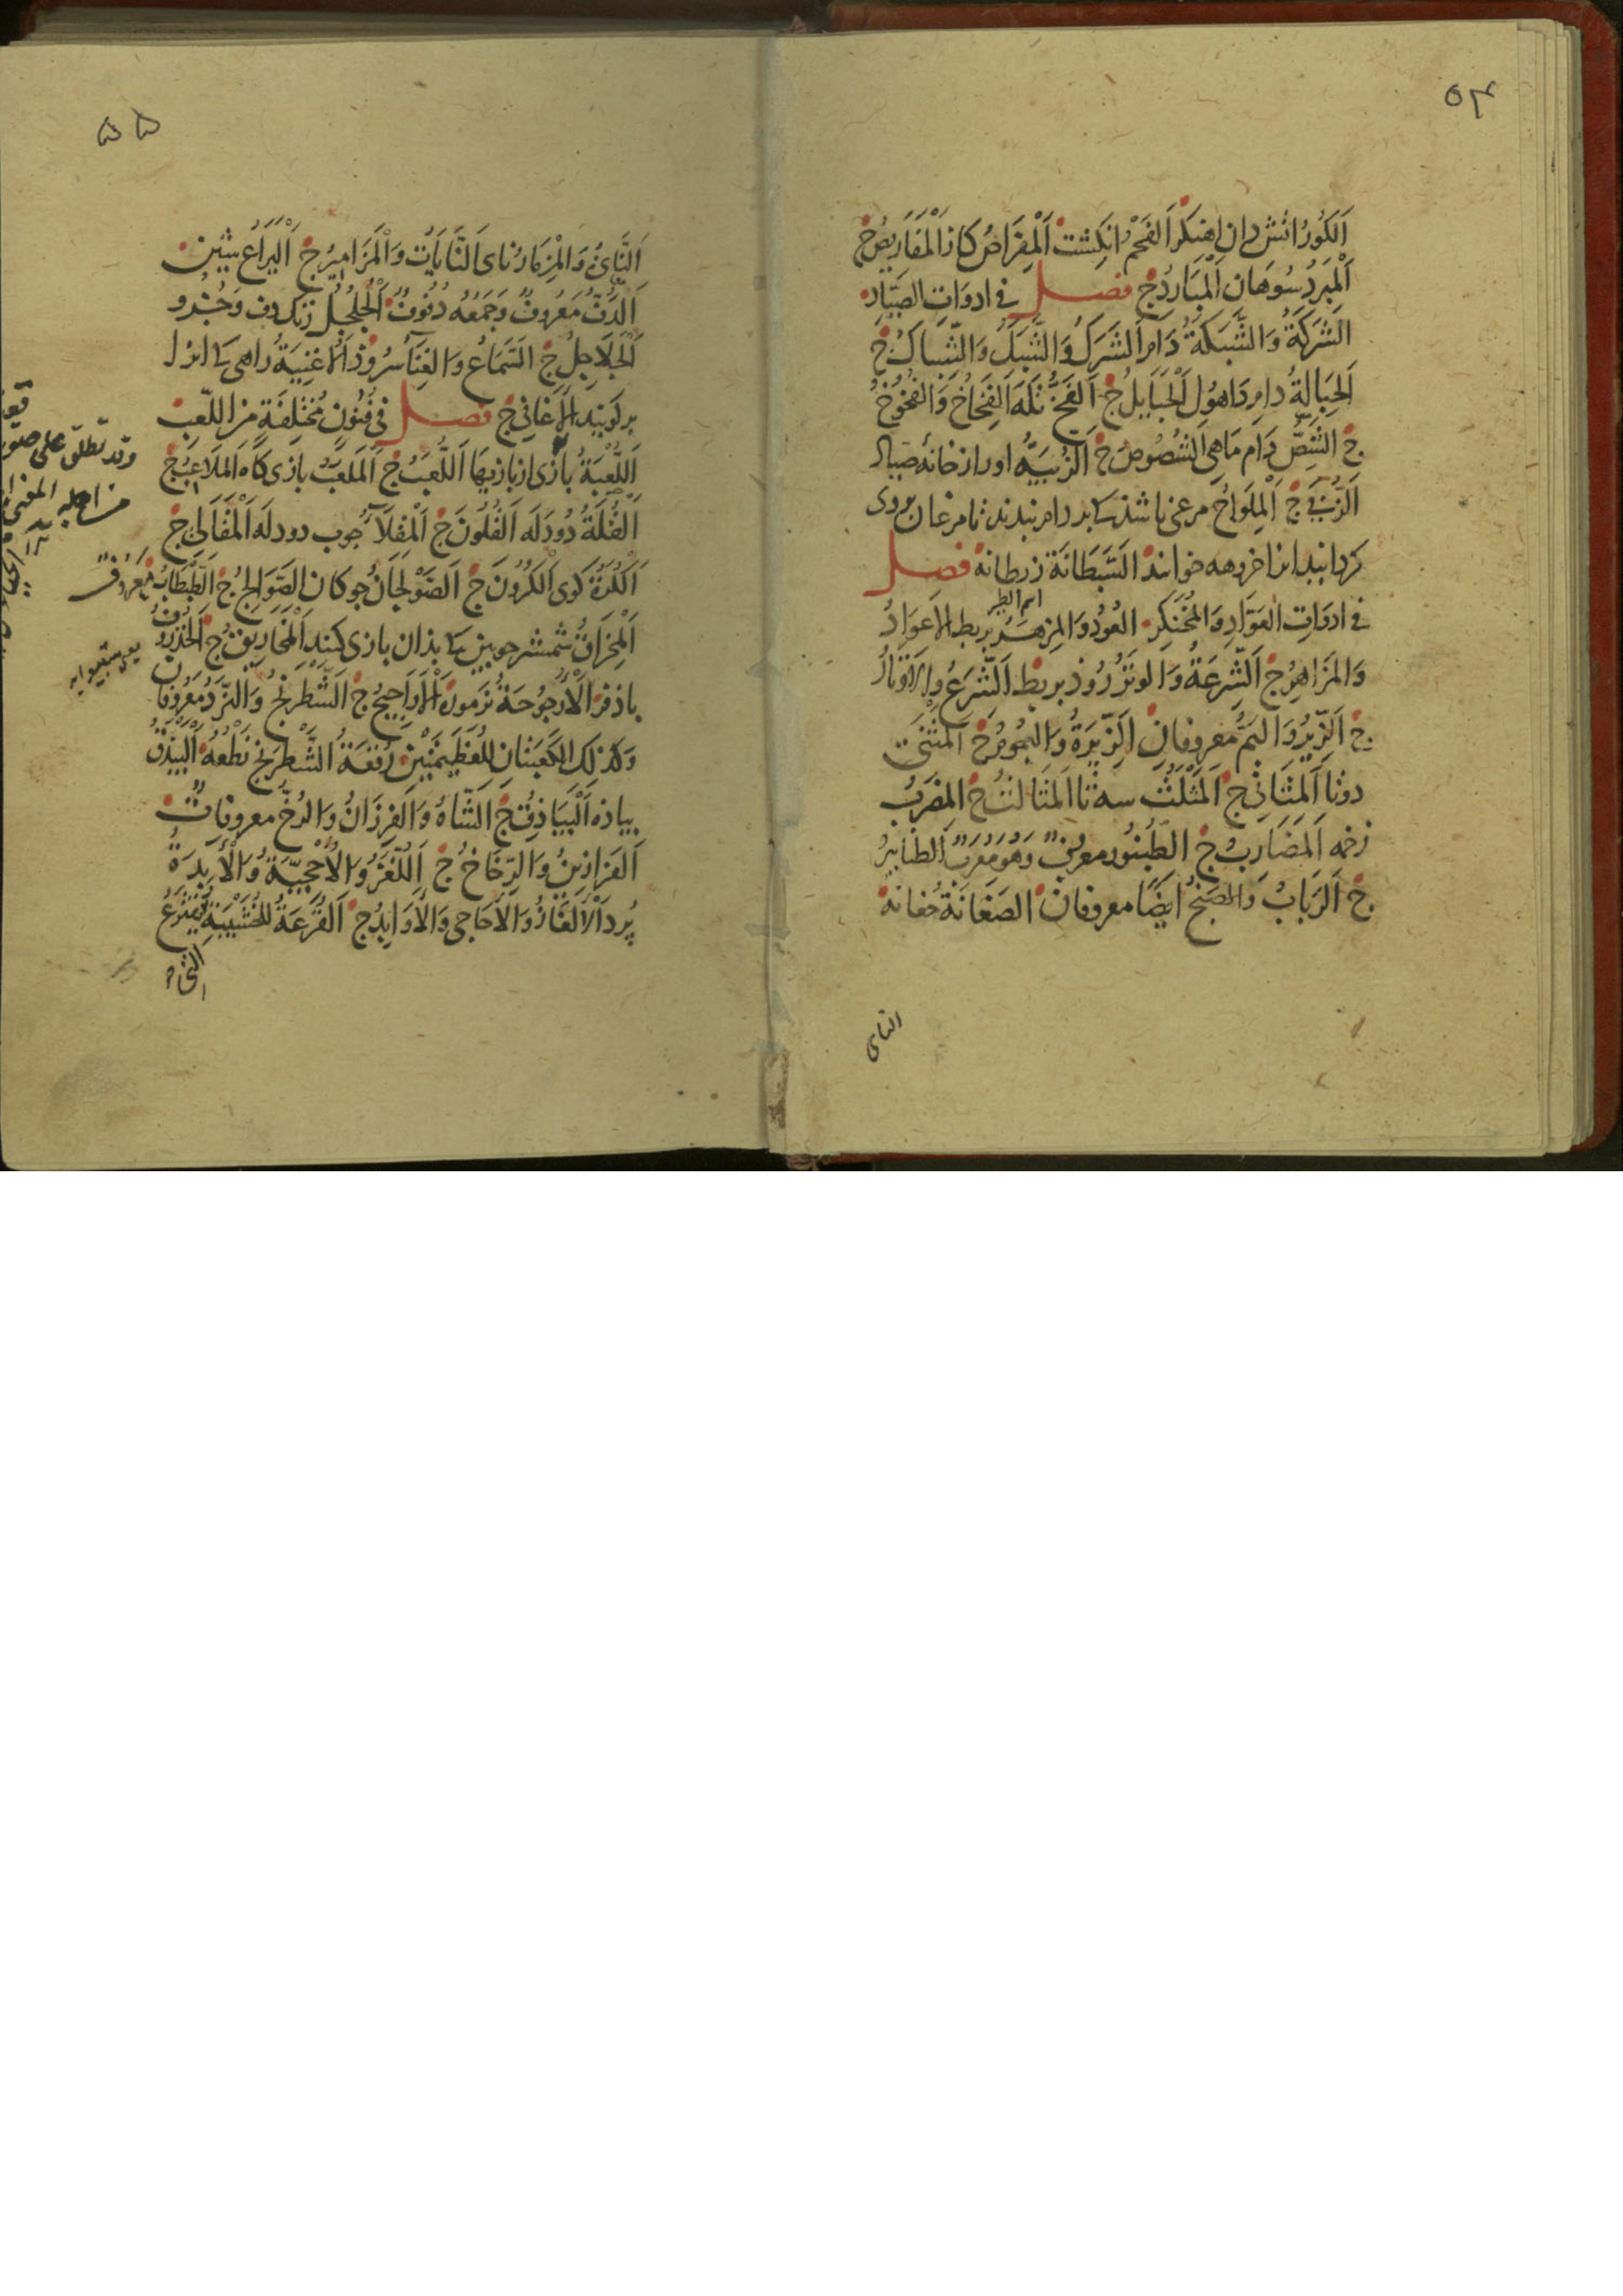 ٥٤
اَلكُورُ اتش دان اهنكر اَلفَحْمُ انكِشت اَلْمِقرَاضُ كاز اَلْمَقَارِيضُ ج
اَلْمِبْرَدُ سُوهَان اَلْمَبَارِدُ ج فصل في ادوَاتِ الصَيّادِ
الشَرَكَةُ وَالشَّبَكَةُ دَام اَلشَرَكُ وَالشَّبَكُ وَالشِّبَاكُ ج
اَلحِبَالةُ دام دَاهُول اَلْحَبَايلُ ج اَلفَخُّ تَلَه اَلفِخَاخُ وَالفُخُوخُ
ج الشِّصُّ دَام مَاهى الشُصُوصُ ج اَلزُبْيَةُ اوراز خانهٔ صيّاد
اَلزُبىَ ج اَلْمِلوَاحُ مرغى باشذ كه بر دام بندند تا مرغان بروى
كرد ايند انرا خروهه خوانند السَّبَطَانَة زبطانه فصل
فى ادوَاتِ العَوّادِ وَالمُخَنكِرِ العُودُ وَالمِزهَرُ بربط الاَعوَادُ
اسم الطير
وَالمَزَاهِرُ ج اَلشِّرعَةُ وَالوتَرُ رُوذ بربط اَلشِّرَعُ والاَوتَارُ
ج اَلزِّيرُ وَالبَمُّ مَعروفانِ اَلزِّيَرَةُ وَالبُمُومُ ج المَثنَى
دوتا اَلمَثَانِى ج اَلمَثْلَثُ سه تا اَلمَثَالثُ ج المِضرَبُ
زخمه اَلمَضَارِبُ ج الطُنبُور معروفٌ وَهُوَ مُعَرَّبٌ الطَنَابيرُ
ج اَلرَبَابُ وَالصَنجُ ايضًا معروفان الصَغَانَة چغانه
الناى
٥٥
اَلنَّاىُ وَالْمِزمَارُ ناى اَلنَّايَاتُ وَالْمَزَاميرُ ج اَلْيَرَاعُ شين
اَلدُّفُّ مَعرُوفٌ وَجَمعُه دُفُوفٌ اَلْجُلجُلُ زنك دف وَجُزْ او
اَلْجَلاَجِلُ ج السَّمَاعُ وَالغِنَاءُ سرُوذ اَلاُغنِيَةُ راهى كه انرا
بر كويند اَلاَغَانِى ج فصل فى فُنُونٍ مُختَلِفَةٍ مِنَ اللّعِبِ
اَللُّعْبَةُ بازى از بازيها اَللُّعَبُ ج اَلمَلعَبُ بازى كاه اَلمَلاَعِبُ ج
اَلقُلَةُ دُودَلَه اَلقُلُونَ ج اَلْمِقلاَءُ چوب دودلَه اَلْمَقَالِى ج
اَلكُرَةُ كوى اَلكُرُونَ ج اَلصَوْلجَانُ چوكان الصَوَالِجُ ج الطَبْطَابُ معروفٌ
اَلْمِخرَاقُ شمشير چوبين كه بذان بازى كنند اَلْمَخَارِيقُ ج الخُذرُوفُ
باذفر اَلاُرجُوحَةُ نزمون اَلاَرَاجِيحُ ج الشَّطرَنجُ وَالنَّردُ مَعرُوفان
وَكذلك الكَعبَتانِ لِلعَظيمَتَينِ رُقعَةُ الشَّطرَنجِ نَطعُهُ اَلْبَيْذَقُ
پياذه اَلْبَيَاذِقُ ج اَلشَّاهُ وَالفِرزَانُ وَالرُخُّ معروفاتٌ
اَلفَرَازِينُ وَالرِخَاخُ ج اَللُّغَزُ وَالاُحْجِيَّةُ وَالآبِدَةُ
پُرد اَلاَلغَازُ وَالاَحَاجى وَالاَوَابِدُ ج اَلقُرعَةُ لِلخَشَبِيَّةِ يُقتَرَعُ
وقد تطلق على صو
من اهله المغنى